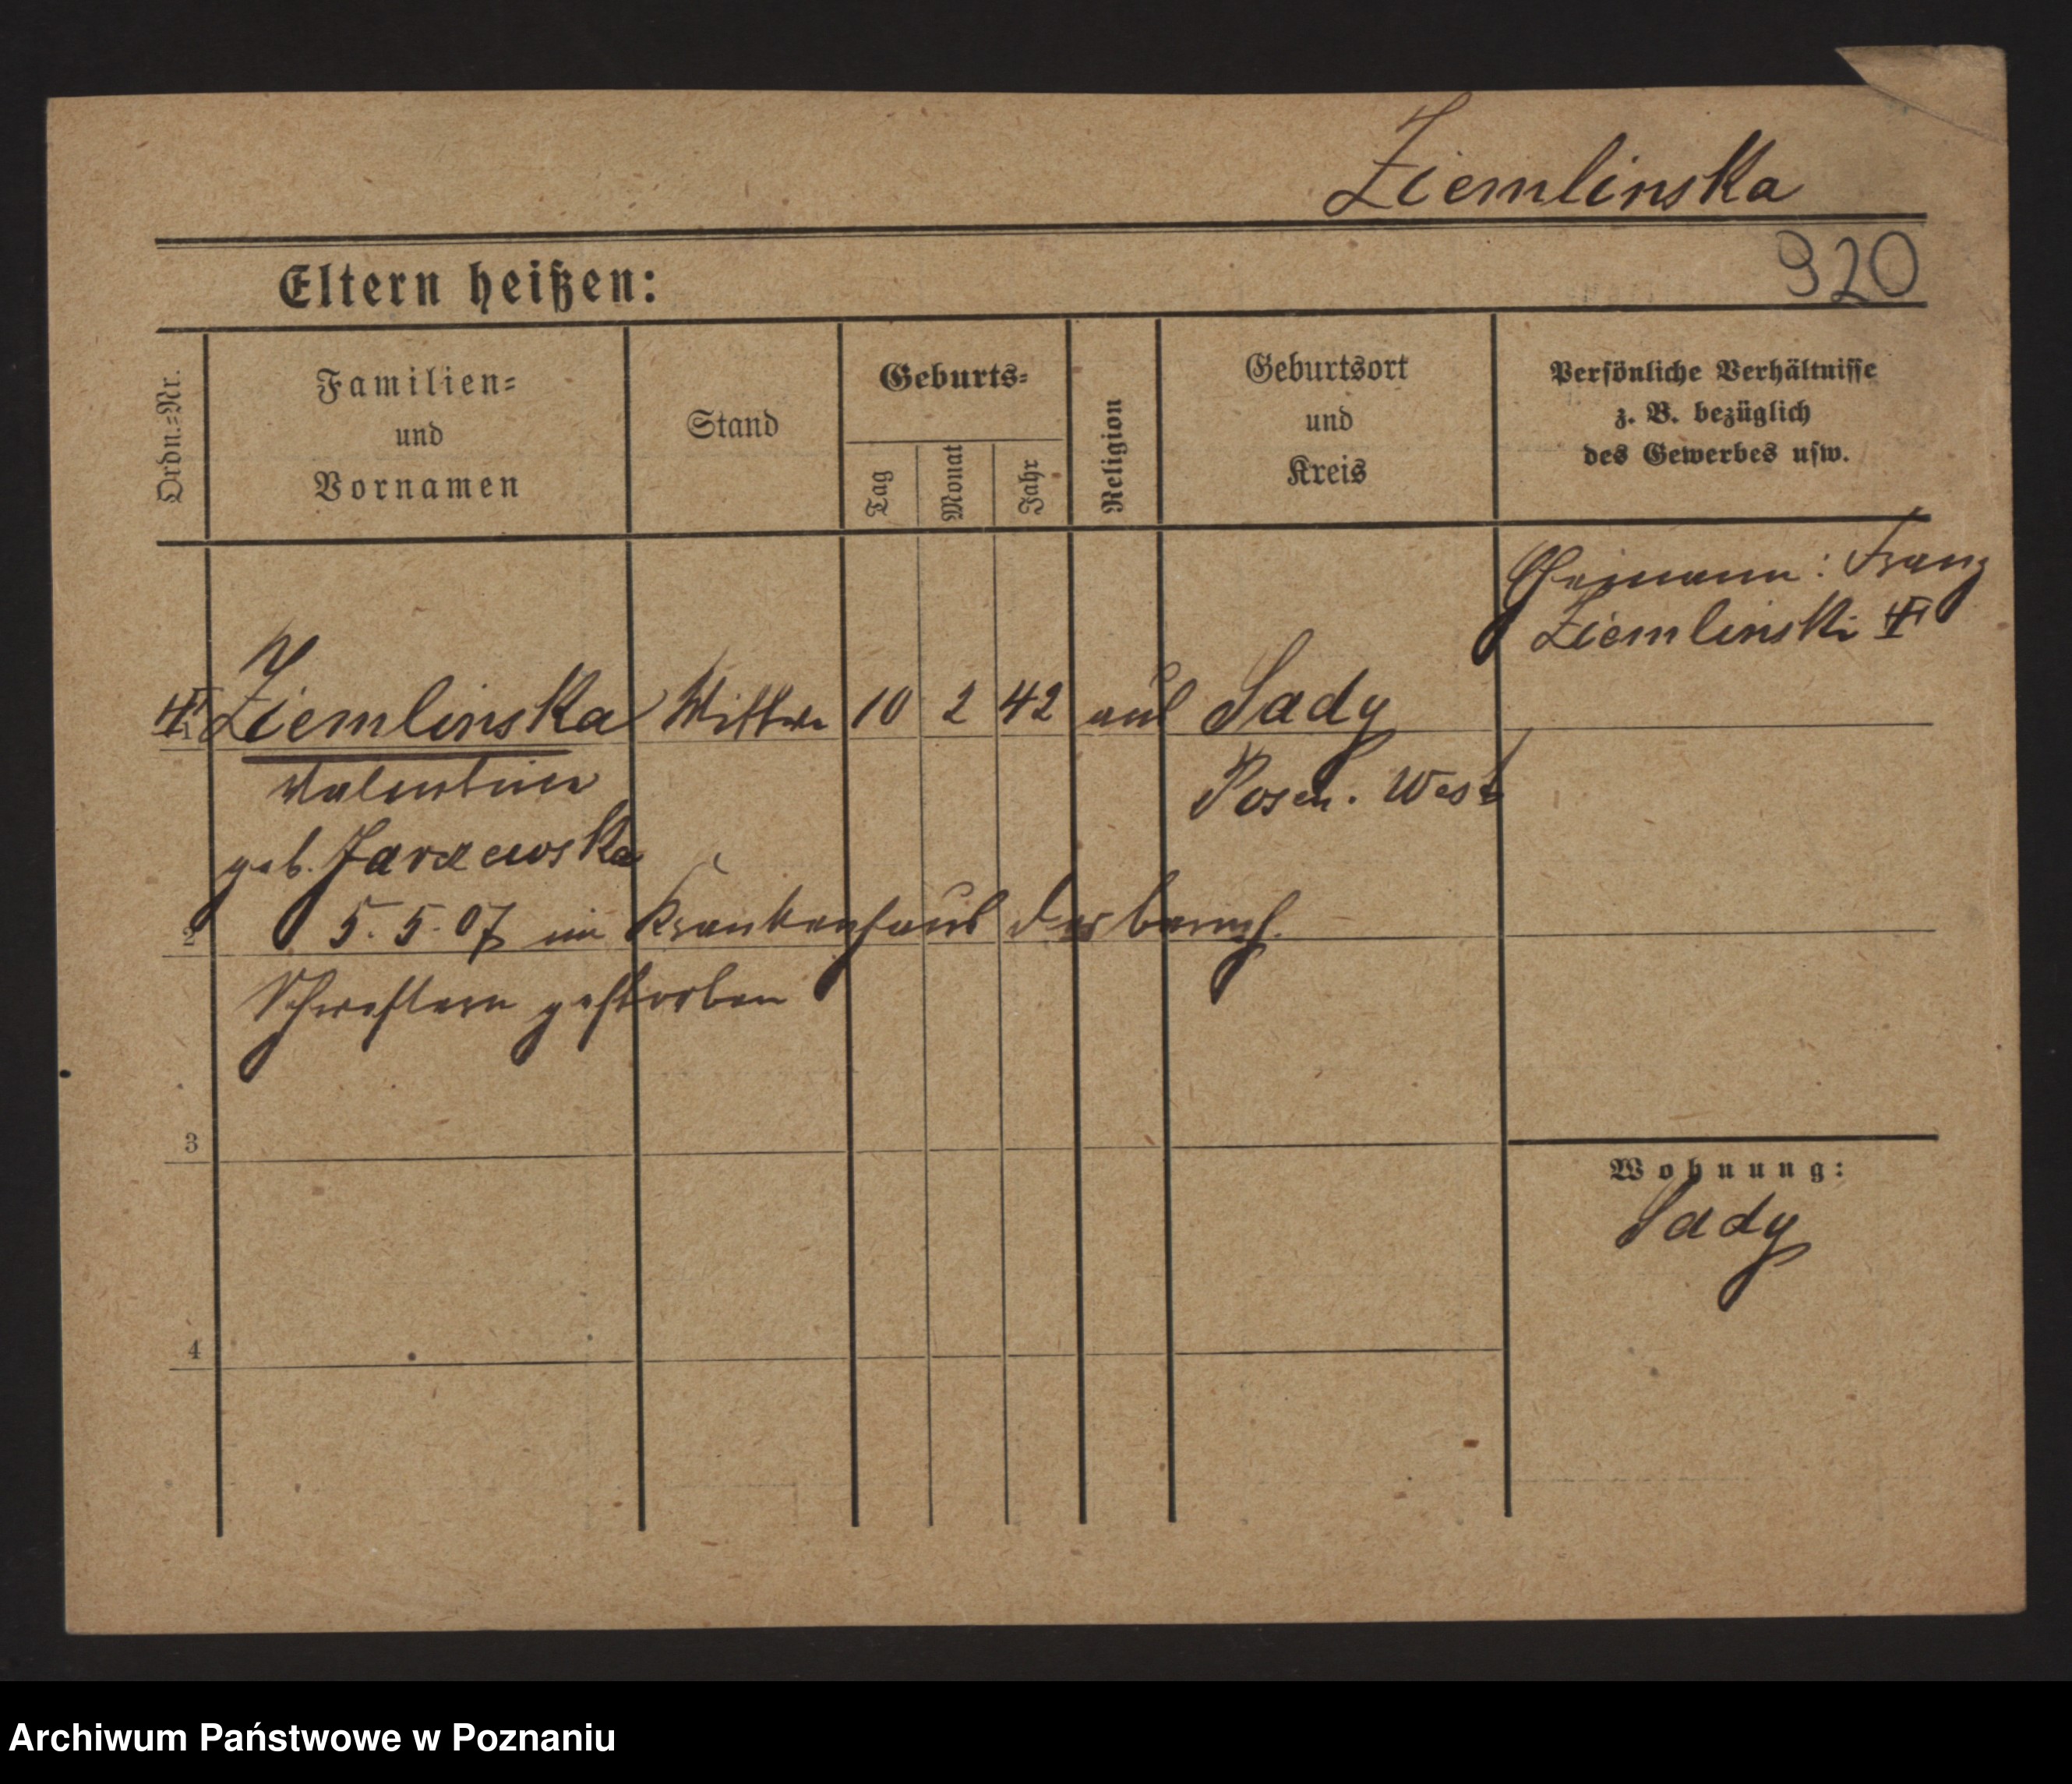 Ziemlinska
920
Eltern heißen:
Ordn.=Nr.
Familien=
und
Vornamen
Stand
Geburts=
Tag
Monat
Jahr
Religion
Geburtsort
und
Kreis
Persönliche Verhältnisse
z. B. bezüglich
des Gewerbes usw.
Ehemann: Franz
Ziemlinski
1 Ziemlinska Wittwe 10 2 42 Sady
Valentine Posen. West
geb.
2 5. 5. 07 im Krankenhaus der barmh.
Schwestern gestorben
3
Wohnung:
Sady
4
Archiwum Państwowe w Poznaniu